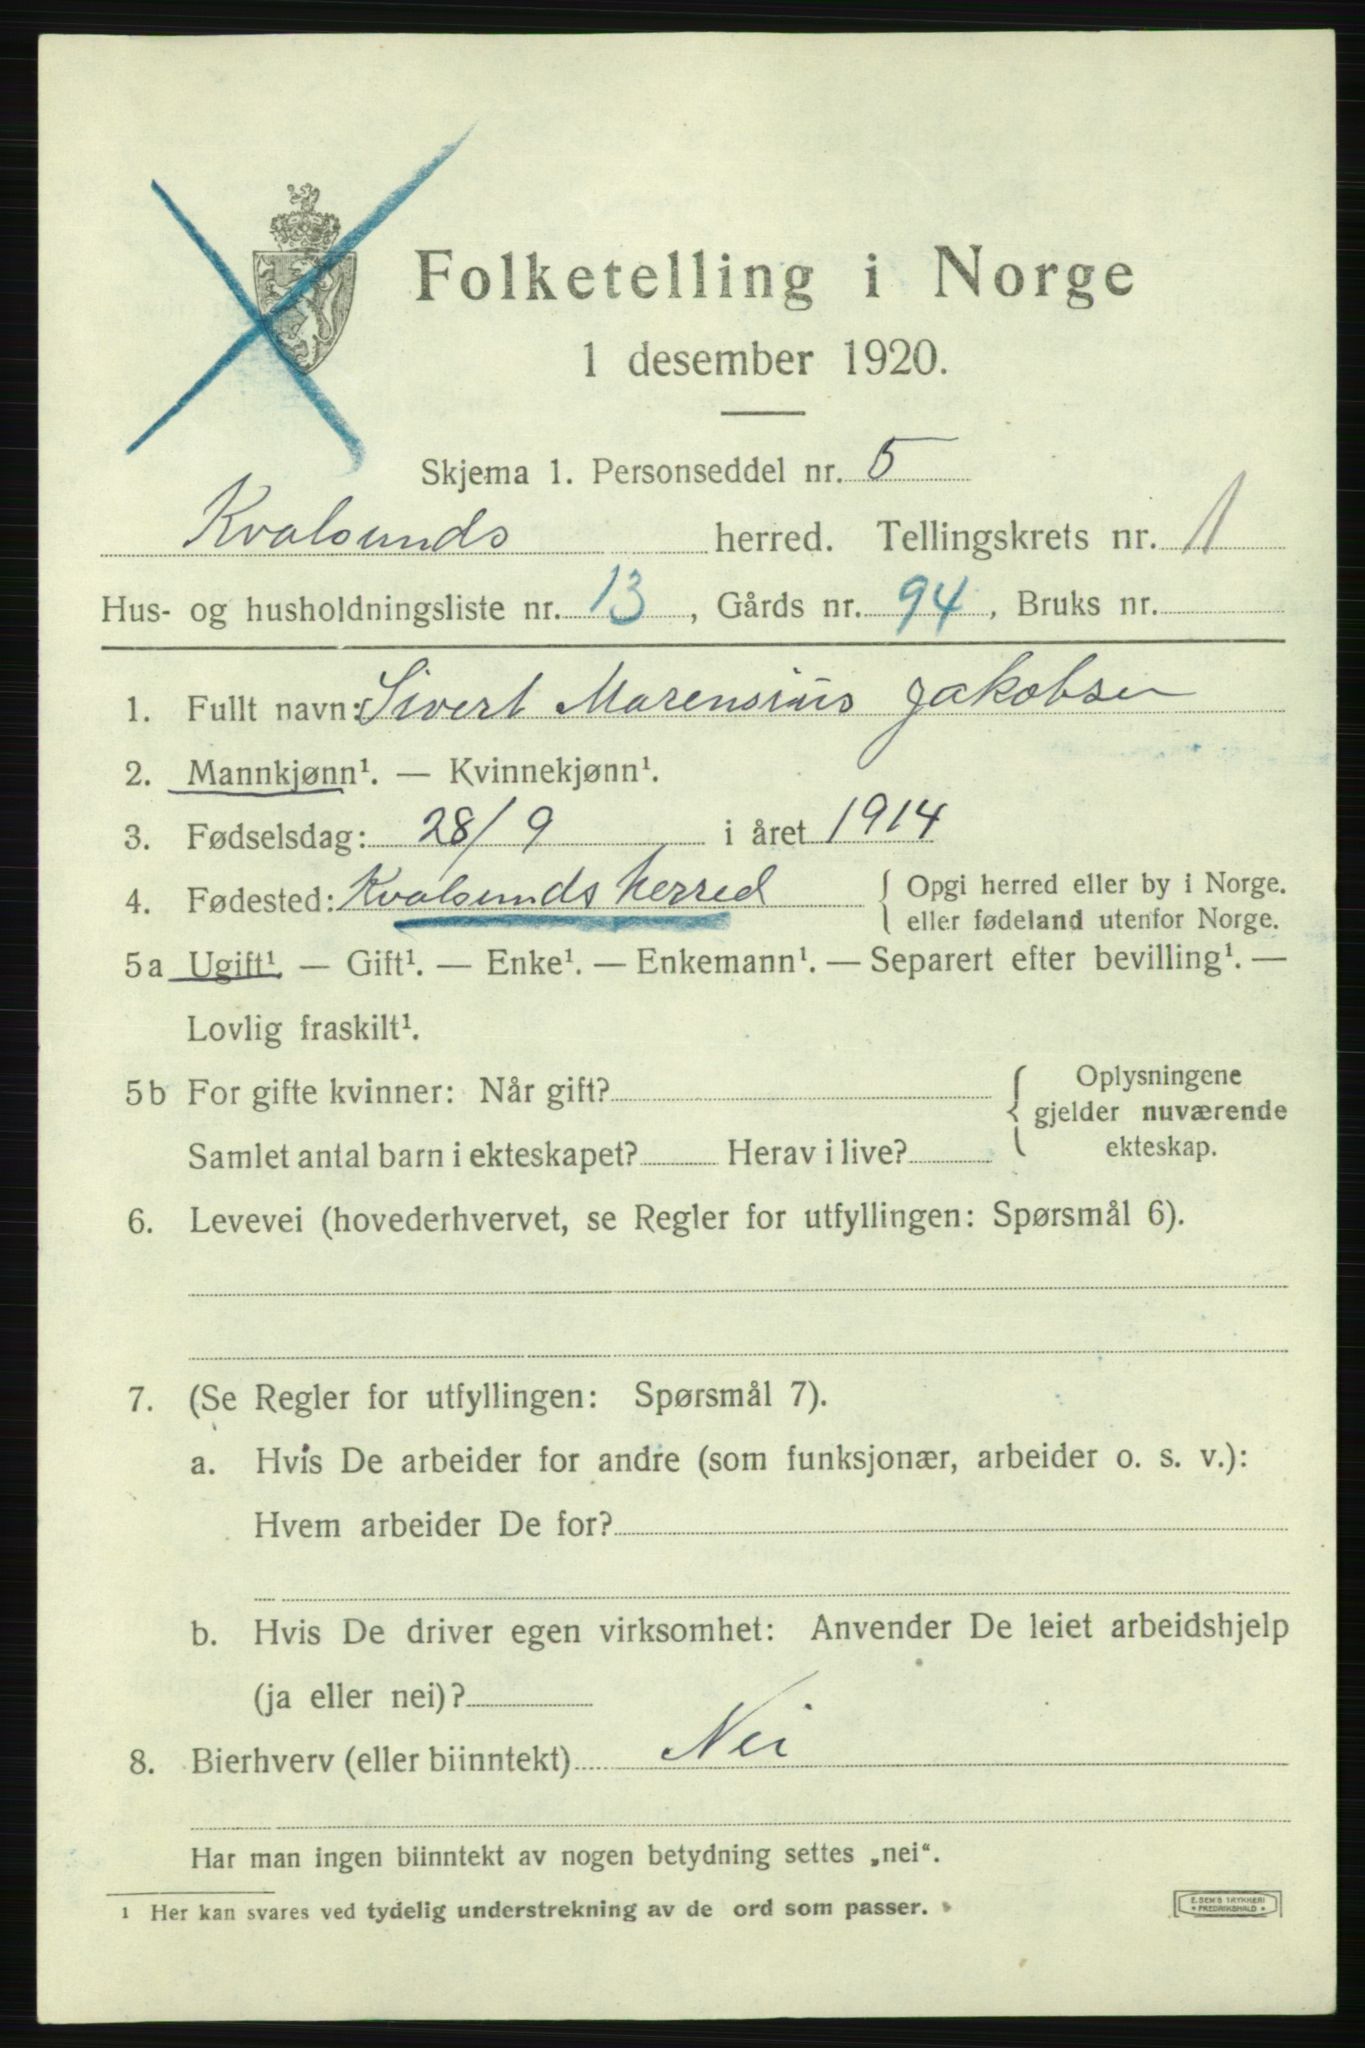 Folketelling i Norge
1 desember 1920.
Skjema 1. Personseddel nr. 5
Kvalsunds herred. Tellingskrets nr. 1
Hus- og husholdningsliste nr. 13, Gårds nr. 94, Bruks nr.
1. Fullt navn: Sivert Marensius Jakobsen
2. Mannkjønn¹. — Kvinnekjønn¹.
3. Fødselsdag: 28/9 i året 1914
4. Fødested: Kvalsunds herred { Opgi herred eller by i Norge.
eller fødeland utenfor Norge.
5a Ugift¹. — Gift¹. — Enke¹. — Enkemann¹. — Separert efter bevilling¹. —
Lovlig fraskilt¹.
5b For gifte kvinner: Når gift? { Oplysningene
gjelder nuværende
Samlet antal barn i ekteskapet? Herav i live? ekteskap.
6. Levevei (hovederhvervet, se Regler for utfyllingen: Spørsmål 6).
7. (Se Regler for utfyllingen: Spørsmål 7).
a. Hvis De arbeider for andre (som funksjonær, arbeider o. s. v.):
Hvem arbeider De for?
b. Hvis De driver egen virksomhet: Anvender De leiet arbeidshjelp
(ja eller nei)?
8. Bierhverv (eller biinntekt) Nei
Har man ingen biinntekt av nogen betydning settes „nei“.
1 Her kan svares ved tydelig understrekning av de ord som passer.
E. SEM'S TRYKKERI
FREDRIKSHALD